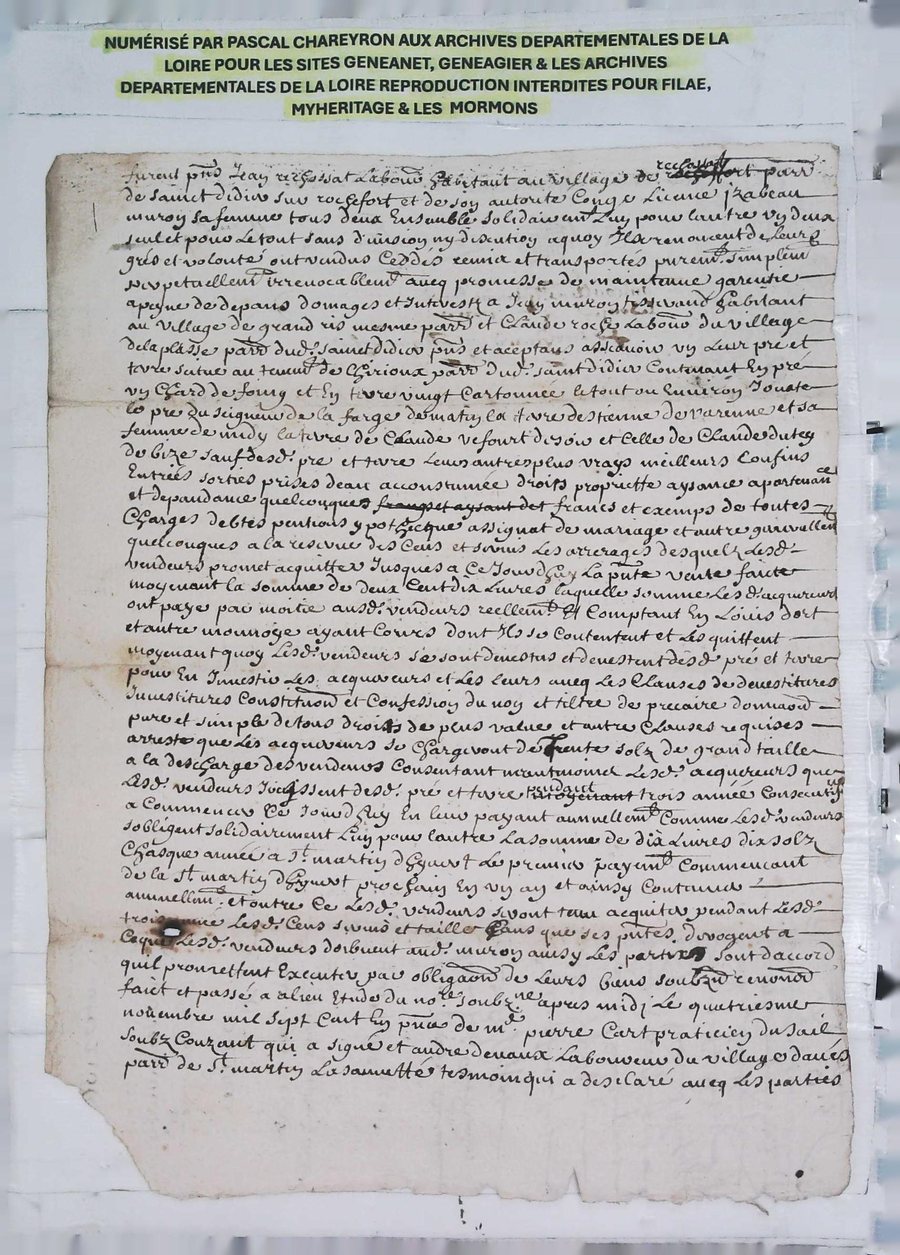 NUMÉRISÉ PAR PASCAL CHAREYRON AUX ARCHIVES DEPARTEMENTALES DE LA
LOIRE POUR LES SITES GENEANET, GENEAGIER & LES ARCHIVES
DEPARTEMENTALES DE LA LOIRE REPRODUCTION INTERDITES POUR FILAE,
MYHERITAGE & LES MORMONS
furent pnts Jean rechossat Labour habitant au village de parr
de sainct didier sur rochefort et de soy autorite Conge Licence jzabeau
muron sa femme tous deux Ensemble solidairemt Luy pour lautre vn deux
seul et pour Le tout sans diuision ny discution a quoy Ilz renoncent de Leurs
grés et volonte ont vendus Ceddés remis et transportés puremt simplemt
perpetuellemt irreuocablemt aueq promesse de maintenue garentie
a peyne de depans domages et Interestz a Jean muron tisserand habitant
au village de grand ris mesme parr et Claude roche Labour du village
de la plasse parr dud. sainct didier pnts et aceptans assauoir vn Leur pre et
terre situé au tenemt de Cherioux parr dud. saint didier Contenant En pré
vn Chard de foing et En terre vingt Cartonnée le tout ou Enuiron Jouxte
le pre du seigneur de la farge de matin la terre destienne de varenne et sa
femme de midy la terre de Claude vefourt de soir et Celle de Claude dutey
de bize sauf desd. pre et terre Leurs autres plus vrays meilleurs Confins
Entrées sorties prises deau accoustumée droits propriette aysance apartenance
et dependance quelconques francs et exemps de toutes
Charges debtes pentions ypothecque assignat de mariage et autre generallemt
quelconques a la reserue des Cens et seruis Les arrerages desquelz Lesd.
vendeurs promet acquitter Jusques a Ce Jourdhuy La pnte vente faicte
moyenant la somme de deux Cent dix Liures laquelle somme Lesd. acquereurs
ont paye par moitie ausd. vendeurs reellemt Et Comptant En Louis dort
et autre monnoye ayant Cours dont Ilz se Contentent et Les quittent
moyenant quoy Lesd. vendeurs se sont deuestus et deuestent desd. pré et terre
pour En Inuestir Les acquereurs et Les leurs aueq Les Clauses de deuestitures
Inuestitures Constitution et Confession du nom et tiltre de precaire donnaon
pure et simple de tous droits de plus value et autre Clauses requises
arresté que Les acquereurs se Chargeront de trente solz de grand taille
a la descharge des vendeurs Consentant Lesd. acquereurs que
Lesd. vendeurs Jouissent desd. pré et terre pendant trois année Consecutifues
a Commencer Ce Jourdhuy En leur payant annuellemt Comme Lesd. vendeurs
sobligent solidairement Luy pour Lautre La somme de dix Liures dix solz
Chasque année a St. martin dhyuert Le premier payemt Commencant
de la St. martin dhyuert prochain En vn an et ainsy Continuer
annuellemt et outre Ce Lesd. vendeurs seront tenu acquiter pendant Lesd.
trois Lesd. Cens seruis et taille sans que ses pntes derogent a
Ceque Lesd. vendeurs doibuent aud. muron ainsy Les parties sont daccord
quil promettent Executer par obligaon de Leurs biens soubzn renoncon
faict et passé a alieu Etude du nore soubzne apres midj Le quatriesme
nouembre mil sept Cent En pnce de me pierre Cart praticien du sail
soubz Couzant qui a signé et andre deuaux Laboureur du village
parr de St. martin La sauuetté tesmoin qui a desclaré aueq Les parties